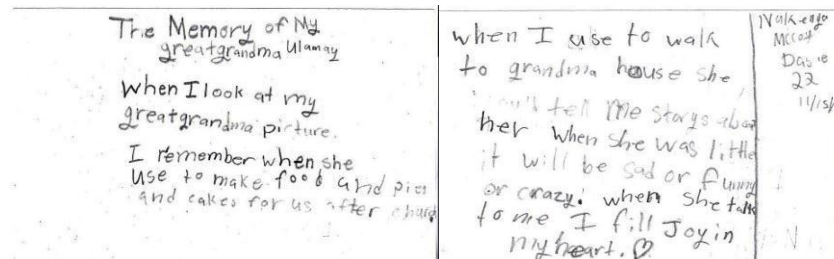 The Memory of My
greatgrandma Ulamay
when I look at my
greatgrandma picture.
I remember when she
use to make food and pies
and cakes for us after
when I use to walk
to grandma house she
tell me storys
her when she was little
it will be sad or funny
or crazy. when she talk
to me I fill Joy in
my heart. ♡
22